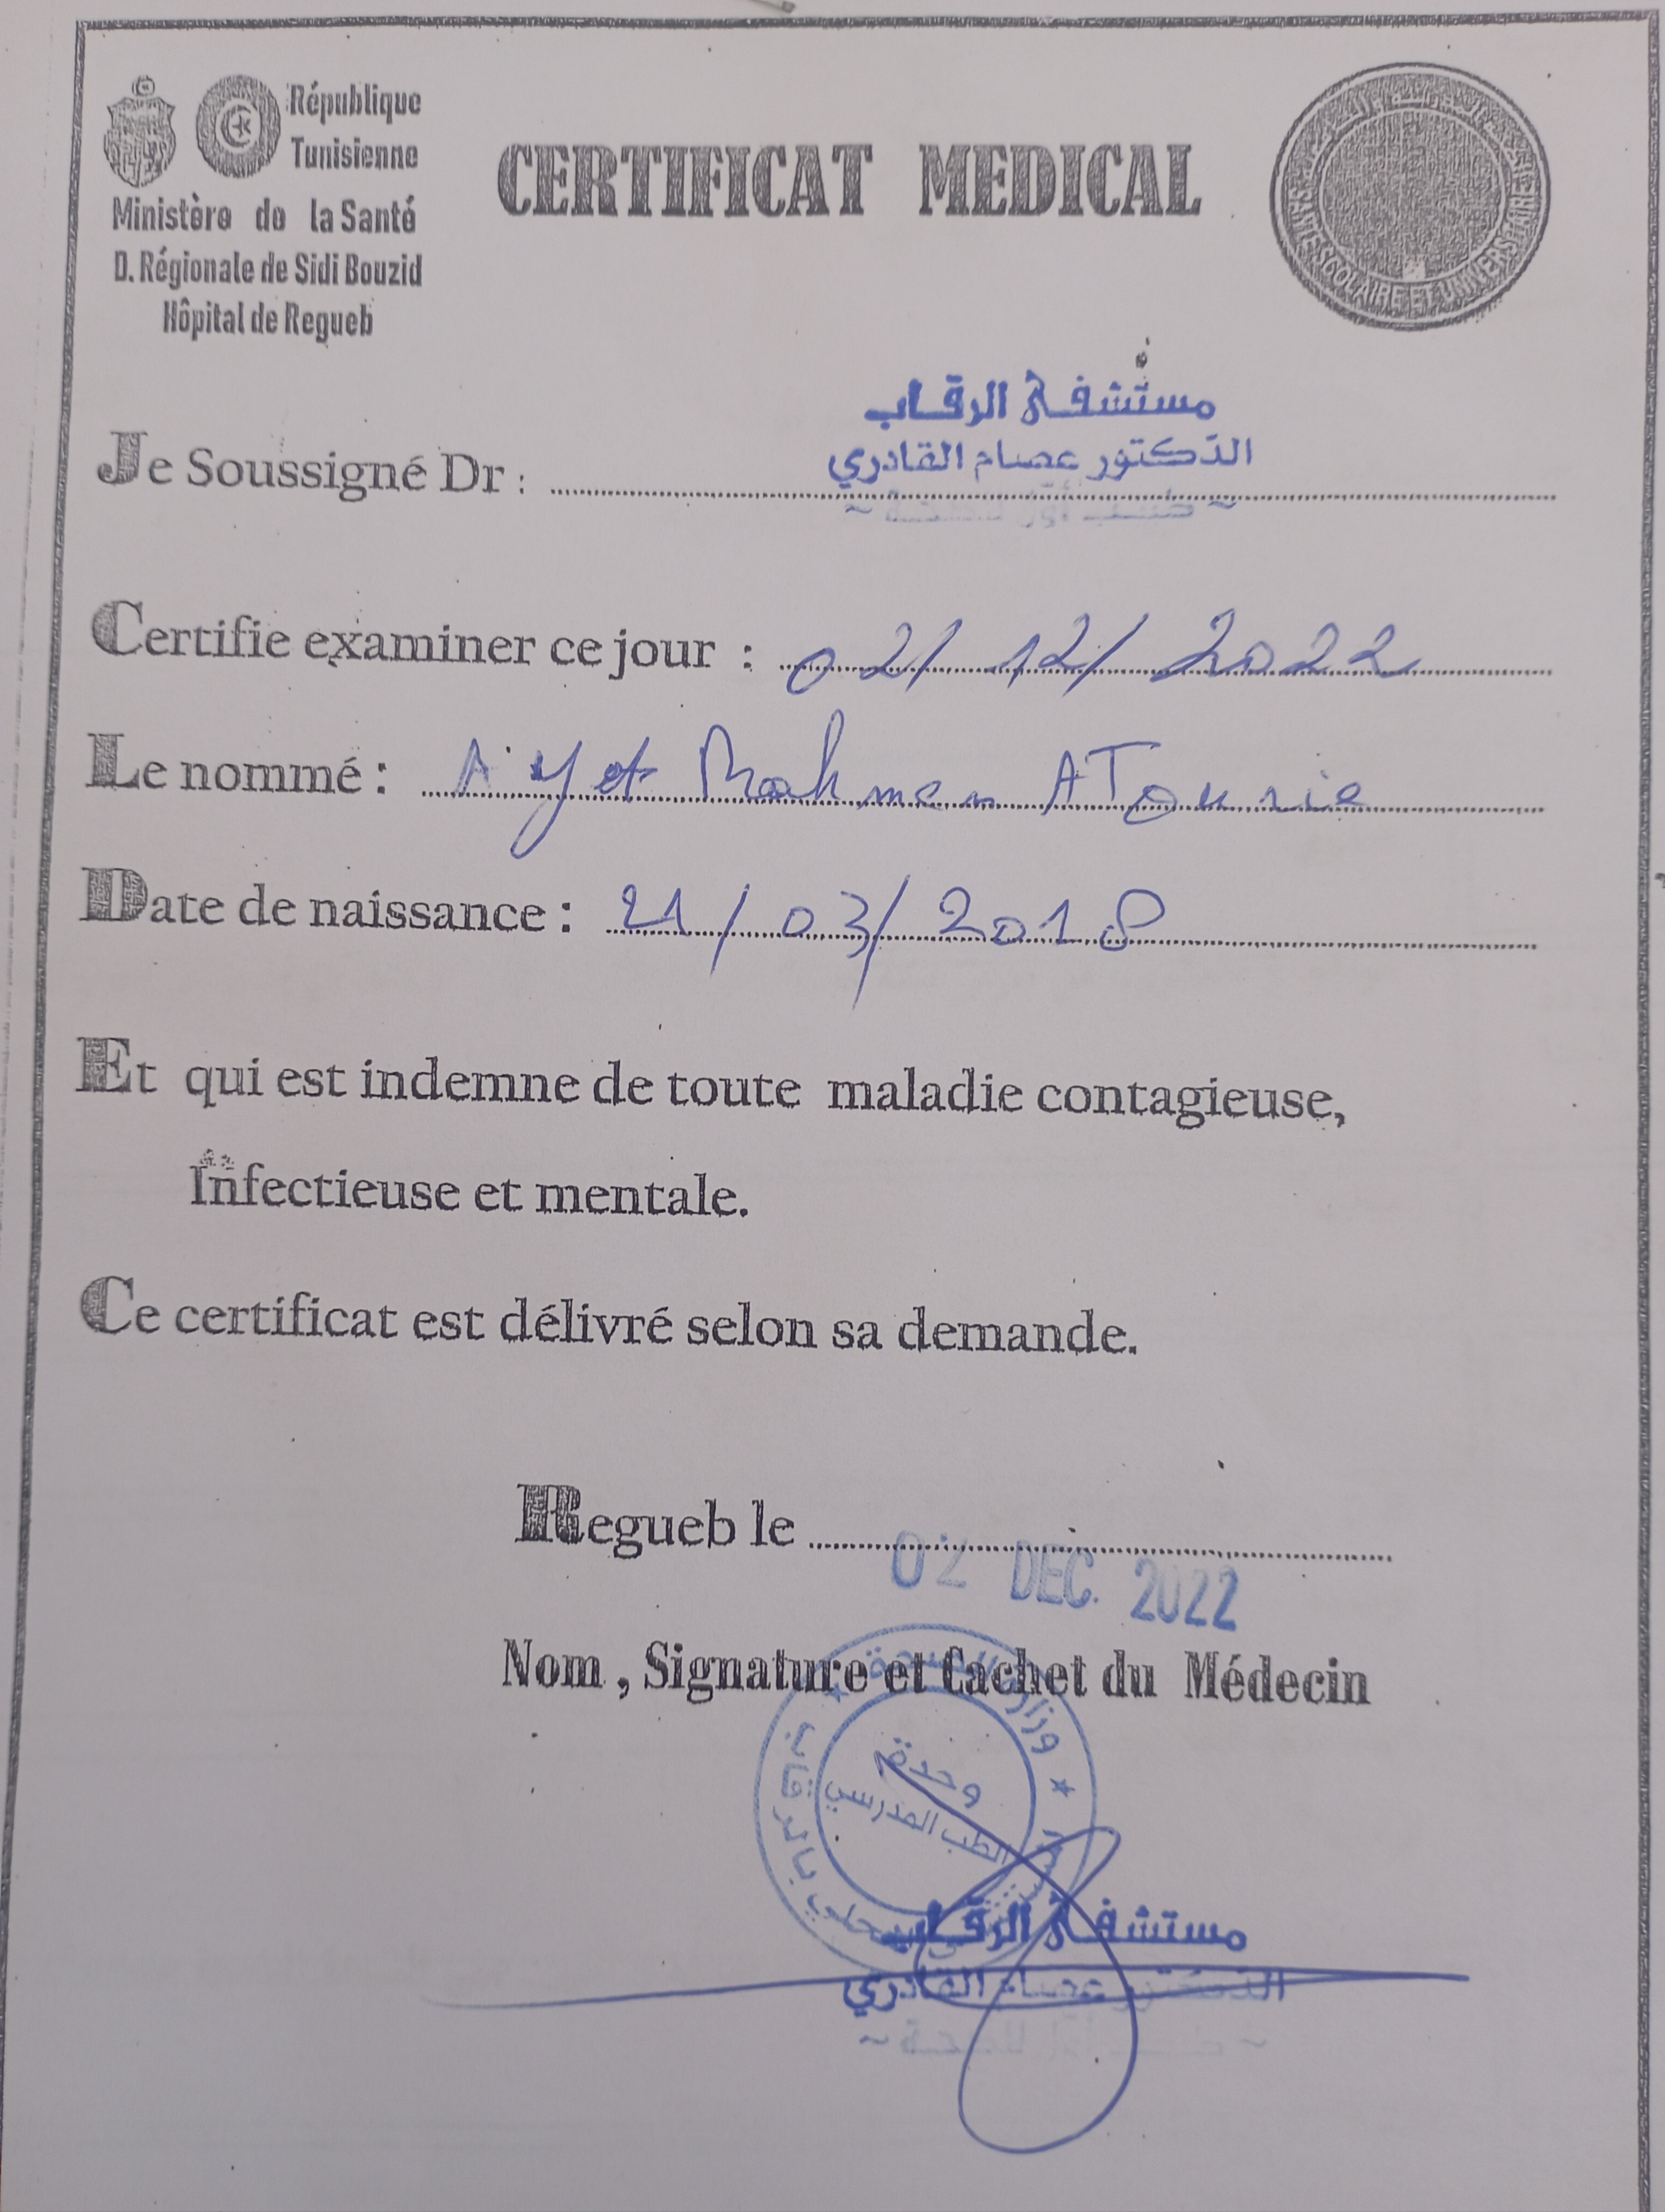 République
Tunisienne
Ministère de la Santé
D. Régionale de Sidi Bouzid
Hôpital de Regueb
CERTIFICAT MEDICAL
SANTE SCOLAIRE ET UNIVERSITAIRE
مستشفى الرقاب
الدكتور عصام القادري
Je Soussigné Dr :
Certifie examiner ce jour : 02/12/2022
Le nommé : A'yet Rahmen ATounie
Date de naissance : 21/03/2018
Et qui est indemne de toute maladie contagieuse,
Infectieuse et mentale.
Ce certificat est délivré selon sa demande.
Regueb le
02 DEC. 2022
Nom , Signature et Cachet du Médecin
وحدة
الطب المدرسي
مستشفى الرقاب
الدكتور عصام القادري